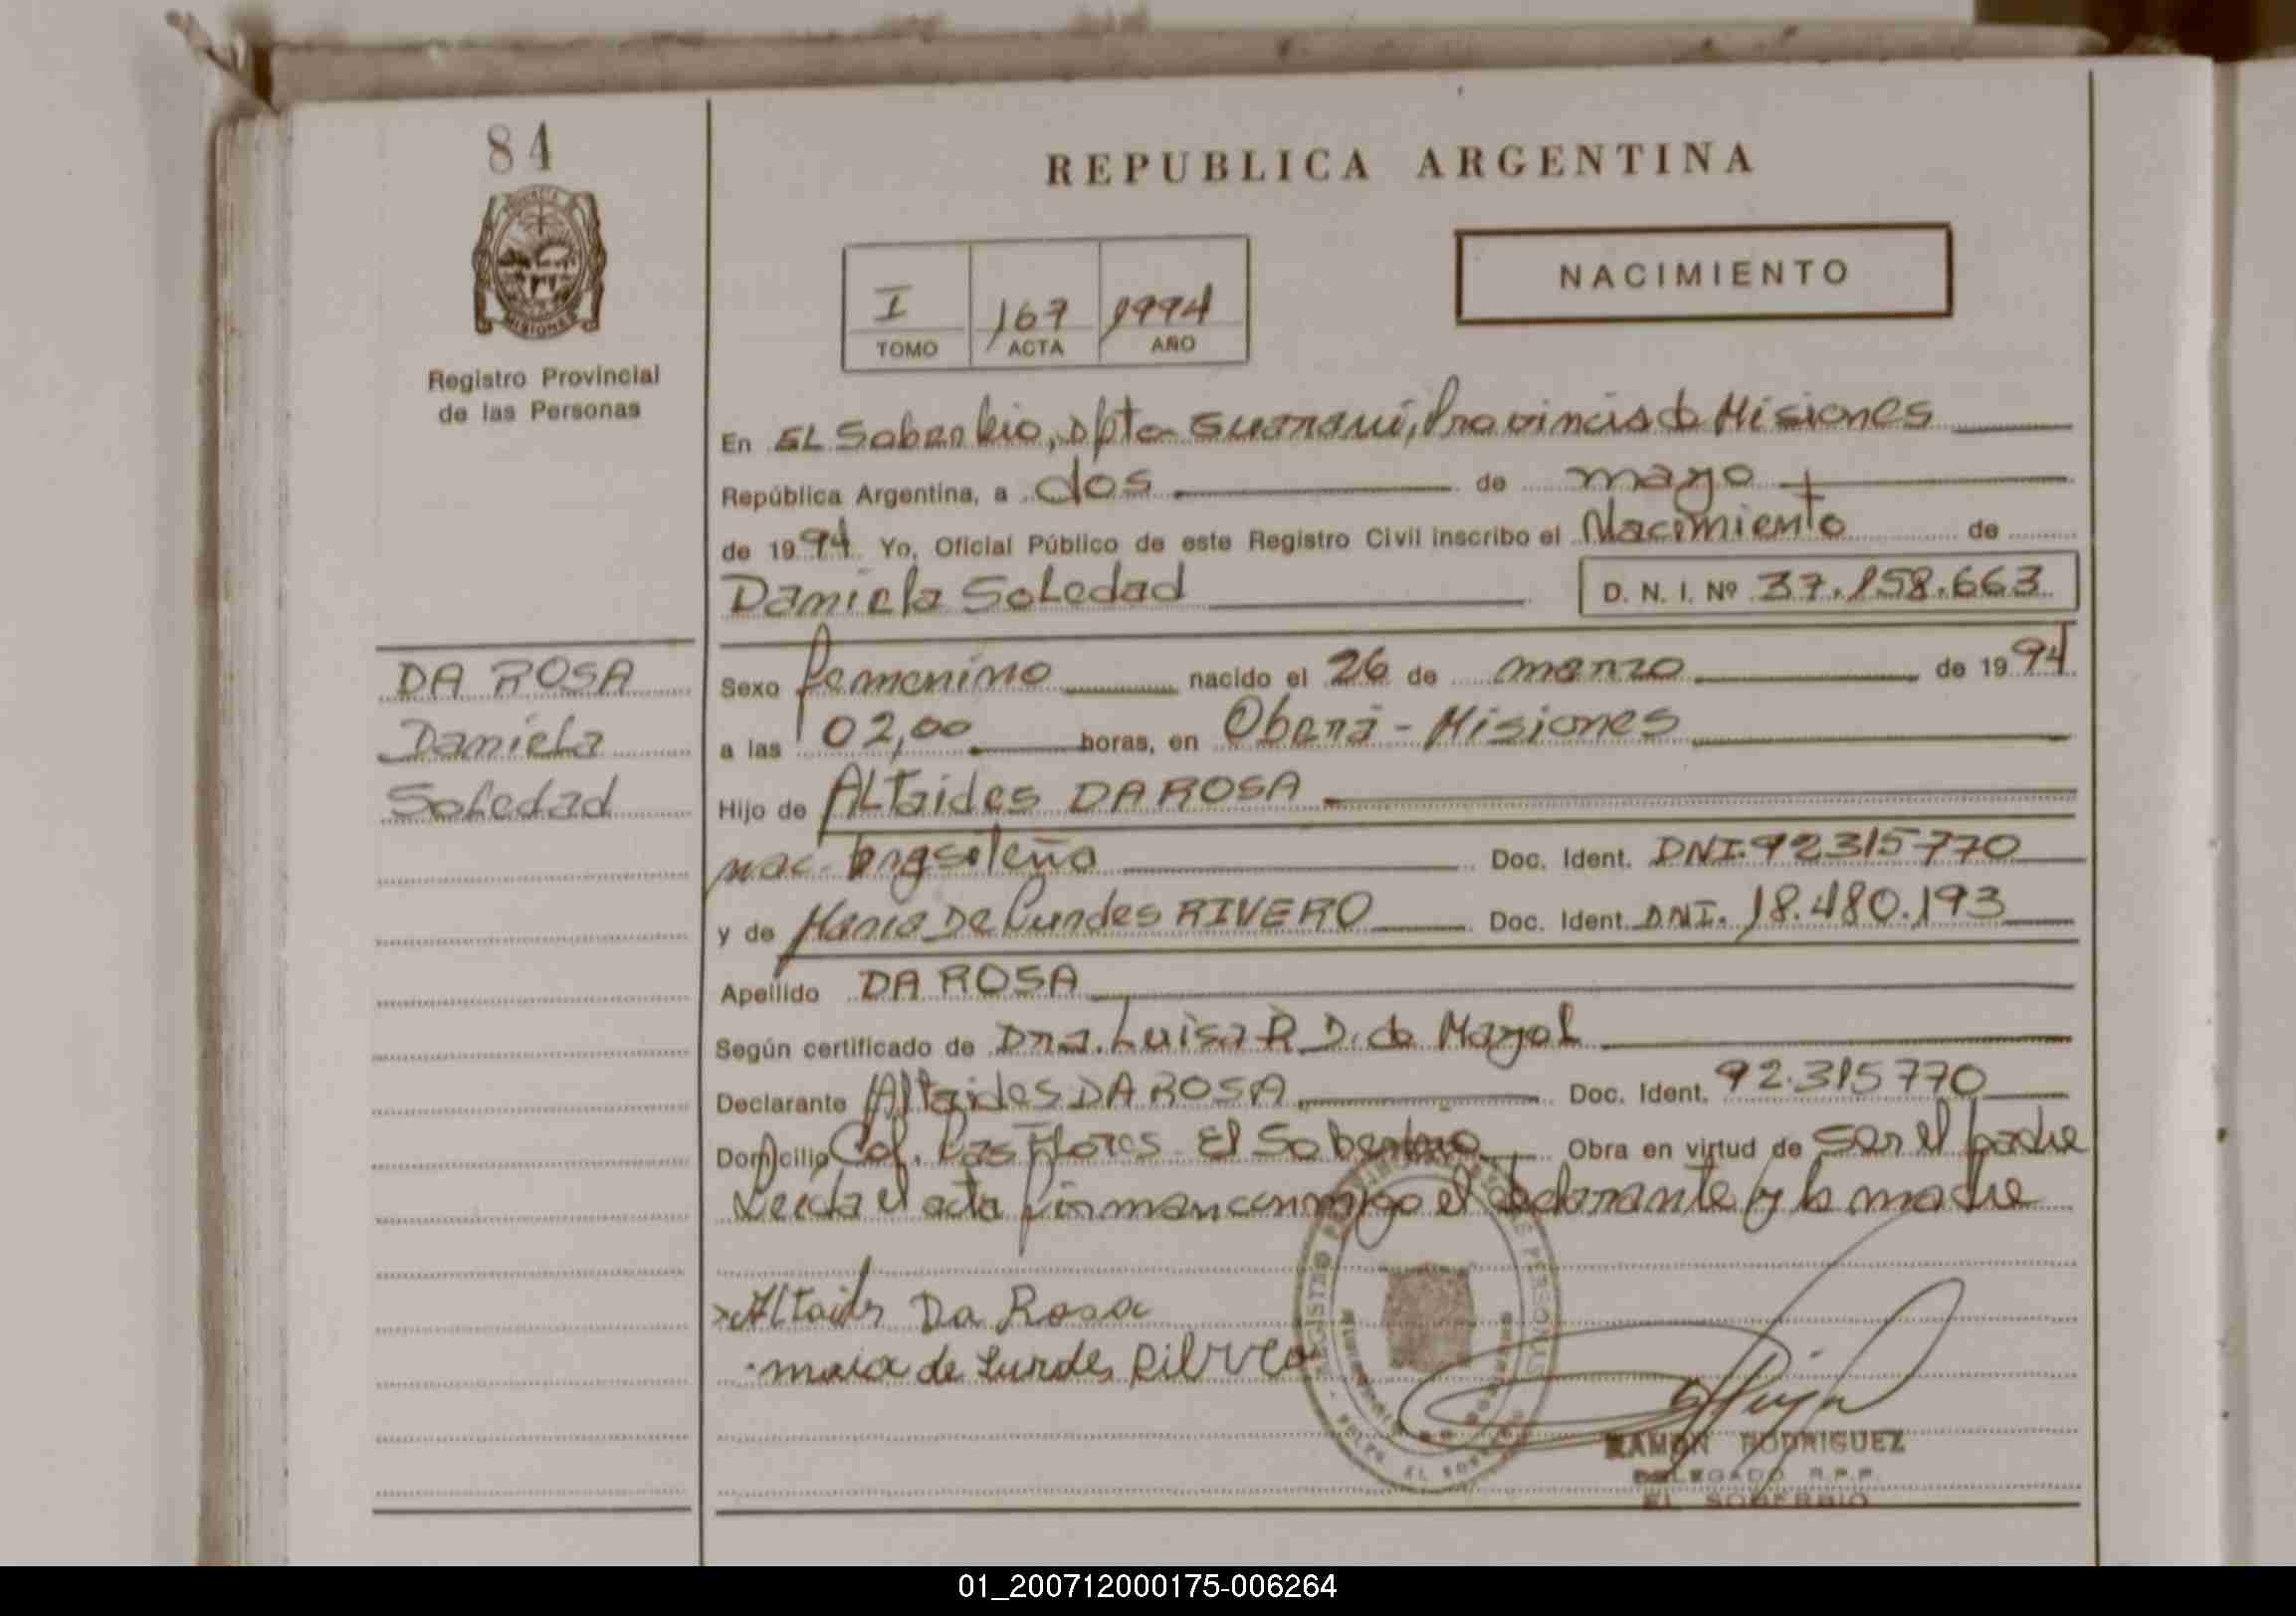 84
MISIONES
Registro Provincial
de las Personas
DA ROSA
Daniela
Soledad
REPUBLICA ARGENTINA
NACIMIENTO
I 167 1994
TOMO ACTA AÑO
En EL Soberbio, Dpto Guaraní, Provincia de Misiones
República Argentina, a dos de mayo
de 1994 Yo, Oficial Público de este Registro Civil inscribo el Nacimiento de
Daniela Soledad D. N. I. Nº 37.158.663
Sexo femenino nacido el 26 de marzo de 1994
a las 02,00 horas, en Oberá - Misiones
Hijo de ALTaides DA ROSA
nac. brasileña Doc. Ident. DNI. 92315770
y de Maria De Lurdes RIVERO Doc. Ident. DNI. 18.480.193
Apellido DA ROSA
Según certificado de Dra. Luisa R D. de Mayol
Declarante Altaides DA ROSA Doc. Ident. 92.315770
Domicilio Col. Las Flores El Soberbio Obra en virtud de ser el padre
Leída el acta firman conmigo el declarante y la madre
Altaides Da Rosa
maia de Lurdes
RAMON RODRIGUEZ
DELEGADO R.P.P.
EL SOBERBIO
01_200712000175-006264